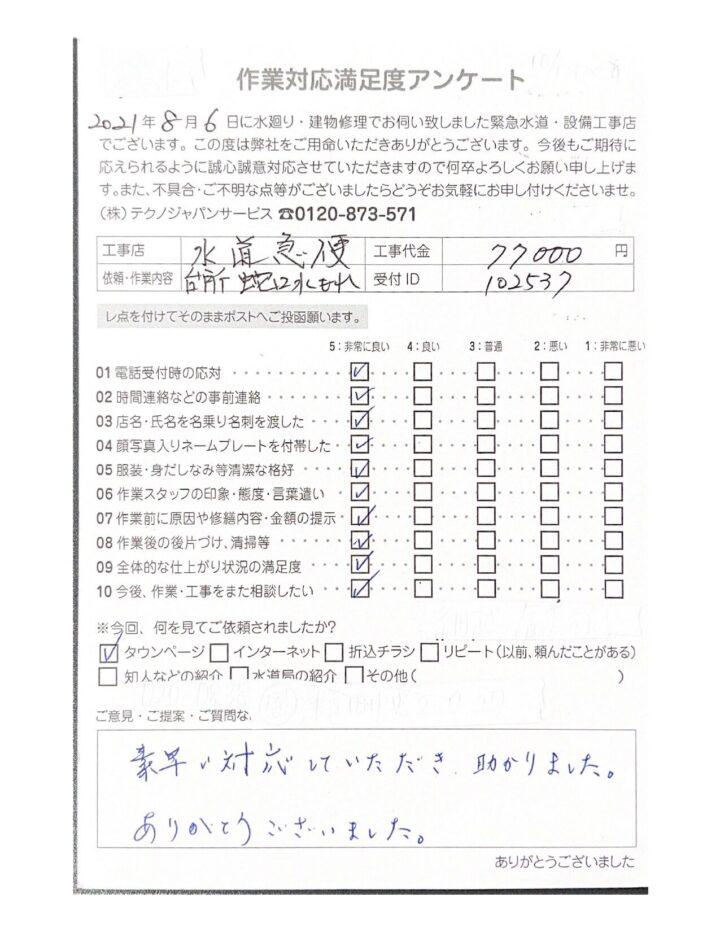 作業対応満足度アンケート
2021年8月6日に水廻り・建物修理でお伺い致しました緊急水道・設備工事店
でございます。この度は弊社をご用命いただきありがとうございます。今後もご期待に
応えられるように誠心誠意対応させていただきますので何卒よろしくお願い申し上げま
す。また、不具合・ご不明な点等がございましたらどうぞお気軽にお申し付けくださいませ。
(株)テクノジャパンサービス ☎0120-873-571
工事店 水道急便 工事代金 77000 円
依頼・作業内容 台所 蛇口水もれ 受付ID 102537
レ点を付けてそのままポストへご投函願います。
5:非常に良い 4:良い 3:普通 2:悪い 1:非常に悪い
01 電話受付時の応対
02 時間連絡などの事前連絡
03 店名・氏名を名乗り名刺を渡した
04 顔写真入りネームプレートを付帯した
05 服装・身だしなみ等清潔な格好
06 作業スタッフの印象・態度・言葉遣い
07 作業前に原因や修繕内容・金額の提示
08 作業後の後片づけ、清掃等
09 全体的な仕上がり状況の満足度
10 今後、作業・工事をまた相談したい
※今回、何を見てご依頼されましたか?
☑タウンページ □インターネット □折込チラシ □リピート(以前、頼んだことがある)
□知人などの紹介 □水道局の紹介 □その他( )
ご意見・ご提案・ご質問な
素早い対応していただき、助かりました。
ありがとうございました。
ありがとうございました